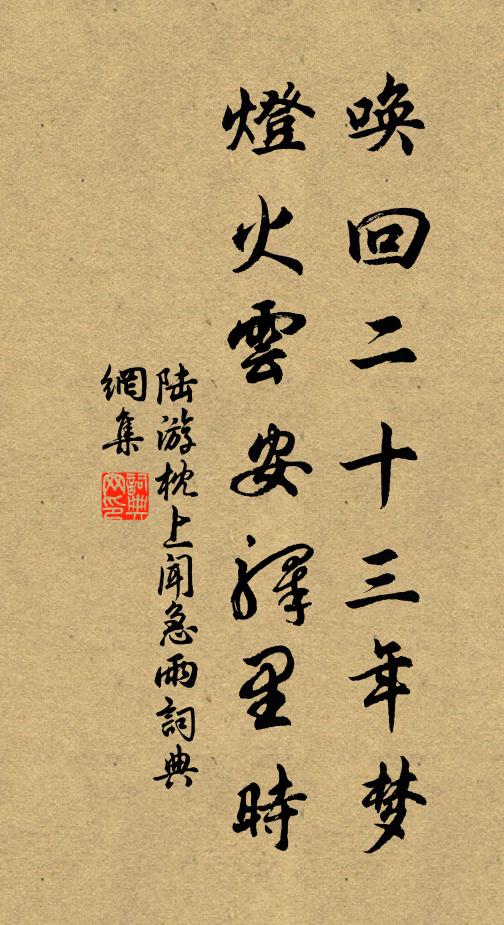 唤回二十三年梦
燈火雲安驛里時
陆游枕上闻急雨詞典
網集
詞典网印